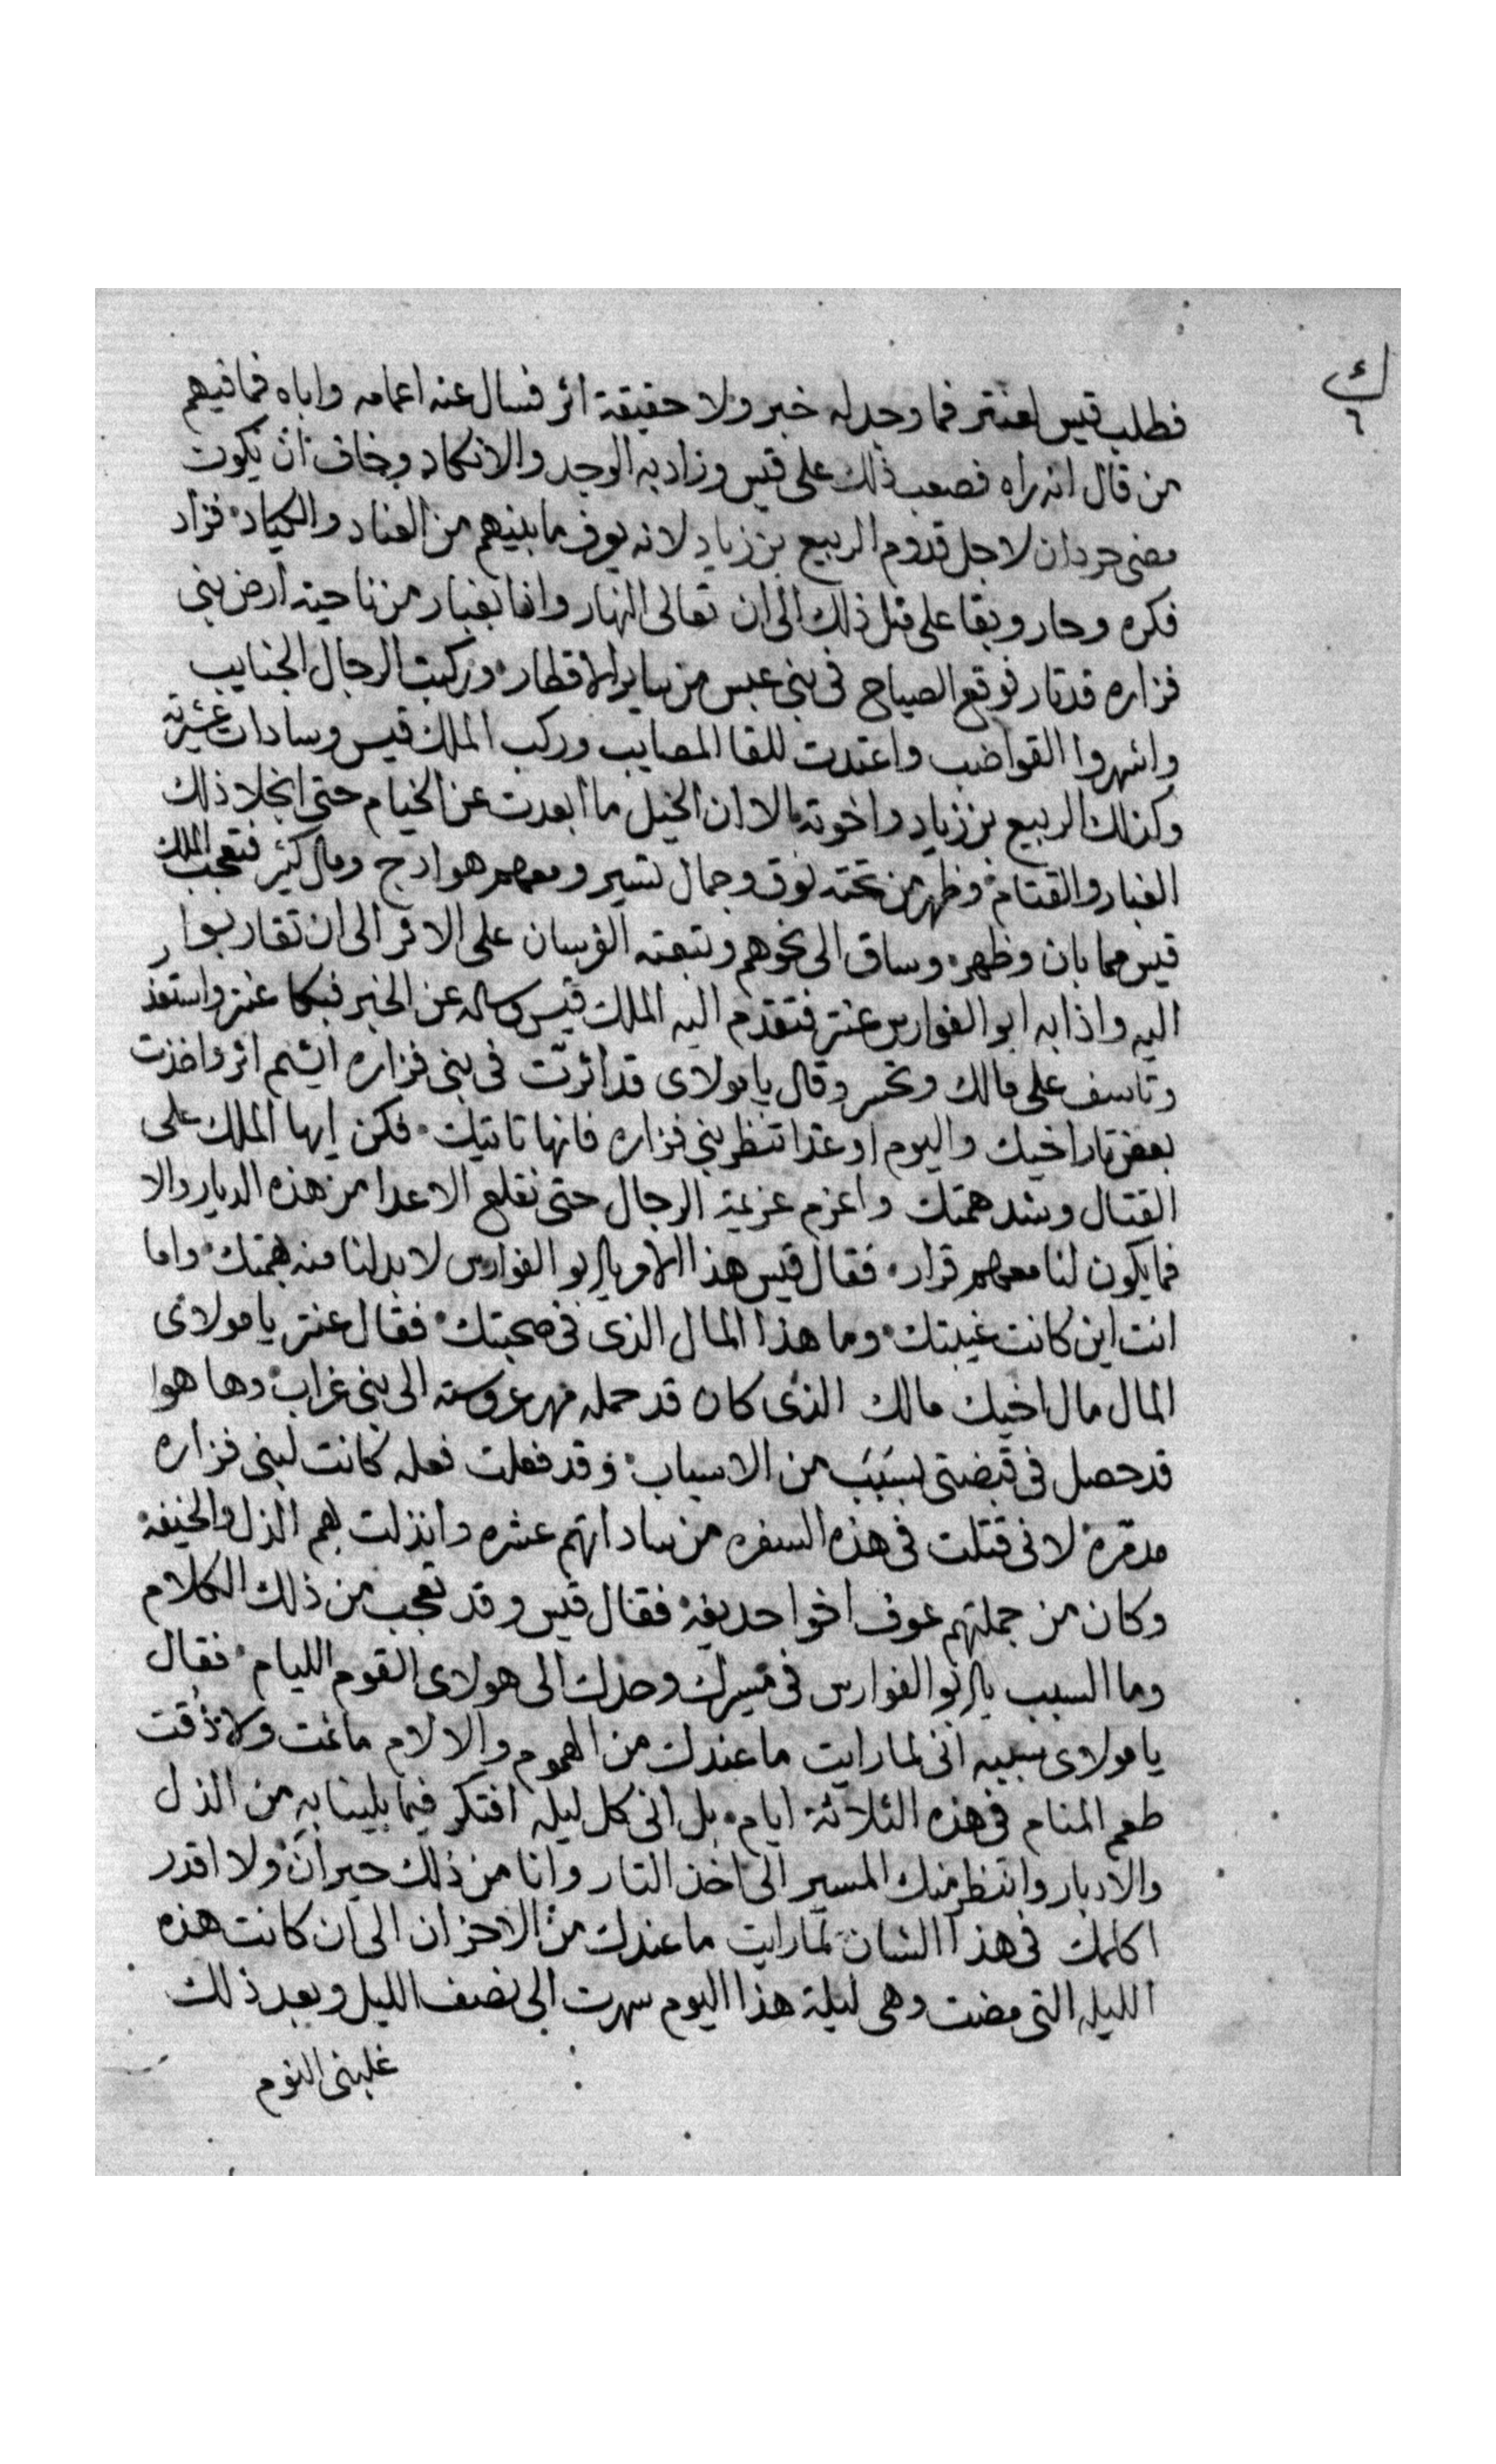 ك ٦
فطلب قيس لعنتر فما وجد له خبر ولا حقيقة اثر فسال عنه اعمامه واباه فما فيهم
من قال انه راه فصعب ذلك على قيس وزاد به الوجد والانكاد وخاف ان يكون
مضى حردان لاجل قدوم الربيع بن زياد لانه يعرف ما بينهم من العناد والكياد فزاد
فكره وحار وبقا على مثل ذلك الى ان تعالى النهار واذا بغبار من ناحية ارض بني
فزاره قد ثار فوقع الصياح في بني عبس من ساير الاقطار وركبت الرجال الجنايب
واشهروا القواضب واعتدت للقا المصايب وركب الملك قيس وسادات عشيرته
وكذلك الربيع بن زياد واخوته الا ان الخيل ما ابعدت عن الخيام حتى انجلا ذلك
الغبار والقتام وظهر من تحته نوق وجمال تسير ومعهم هوادج ومال كثير فتعجب الملك
قيس مما بان وظهر وساق الى نحوهم وتبعته الفرسان على الاثر الى ان تقاربوا
اليه واذا به ابو الفوارس عنتر فتقدم اليه الملك قيس وساله عن الخبر فبكا عنتر واستعبر
وتاسف على مالك وتحسر وقال يا مولاى قد اثرت في بني فزاره ايشم اثر واخذت
بعض تار اخيك واليوم او غدا تنظر بني فزاره فانها تاتيك فكن ايها الملك على
القتال وشد همتك واعزم عزيمة الرجال حتى نقلع الاعدا من هذه الديار والا
فما يكون لنا معهم قرار فقال قيس هذا الامر يا ابو الفوارس لا بد لنا منه بهمتك واما
انت اين كانت غيبتك وما هذا المال الذى في صحبتك فقال عنتر يا مولاى
المال مال اخيك مالك الذى كان قد حمله مهر عروسته الى بني غراب وها هوا
قد حصل في قبضتي بسبب من الاسباب وقد فعلت فعله كانت لبني فزاره
مدمرة لاني قتلت في هذه السفره من ساداتهم عشره وانزلت بهم الذل والخيفة
وكان من جملتهم عوف اخوا حديفة فقال قيس وقد تعجب من ذلك الكلام
وما السبب يا ابو الفوارس في مسيرك وحدك الى هولاى القوم الليام فقال
يا مولاى سببه انى لما رايت ما عندك من الهموم والالام ما نمت ولا ذقت
طعم المنام في هذه الثلاثة ايام بل انى كل ليله افتكر فيما بلينا به من الذل
والادبار وانتظر منك المسير الى اخذ التار وانا من ذلك حيران ولا اقدر
اكلمك في هذا الشان لما رايت ما عندك من الاحزان الى ان كانت هذه
الليله التي مضت وهى ليلة هذا اليوم سهرت الى نصف الليل وبعد ذلك
غلبنى النوم